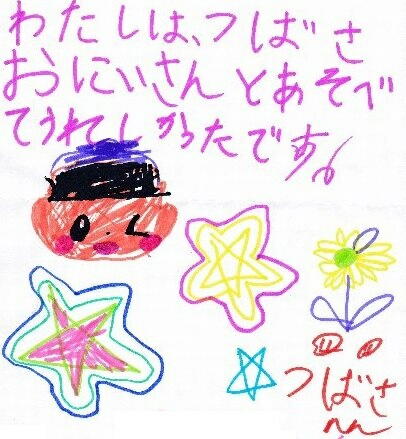 わたしは、つばさ
おにいさんとあそべ
てうれしかったです。
つばさ